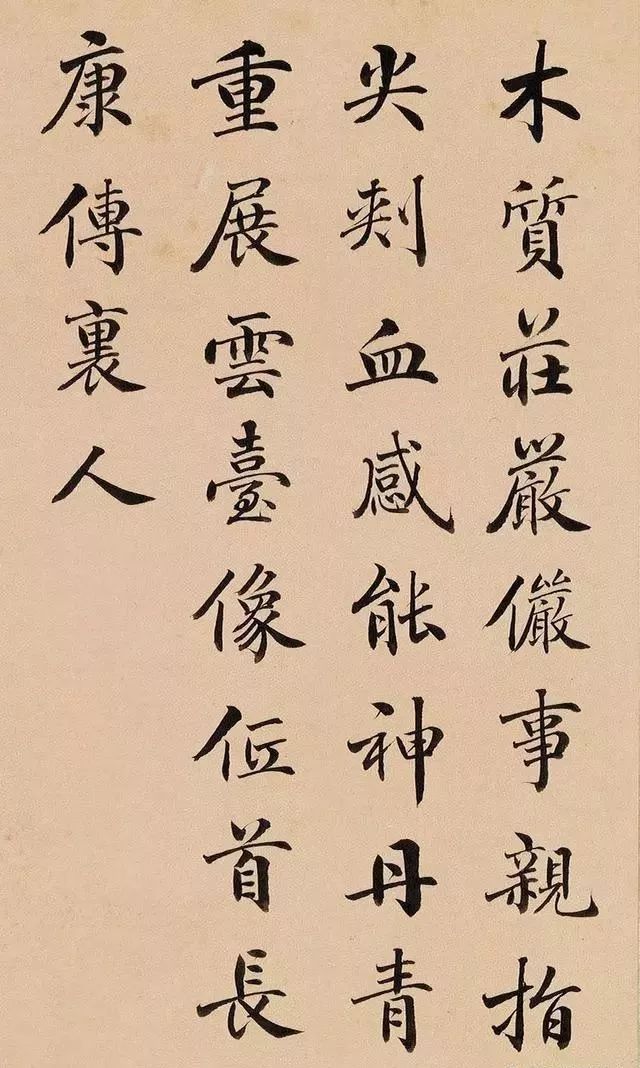 木質莊嚴儼事親指
尖刺血感能神丹青
重展雲臺像低首長
康傳裏人